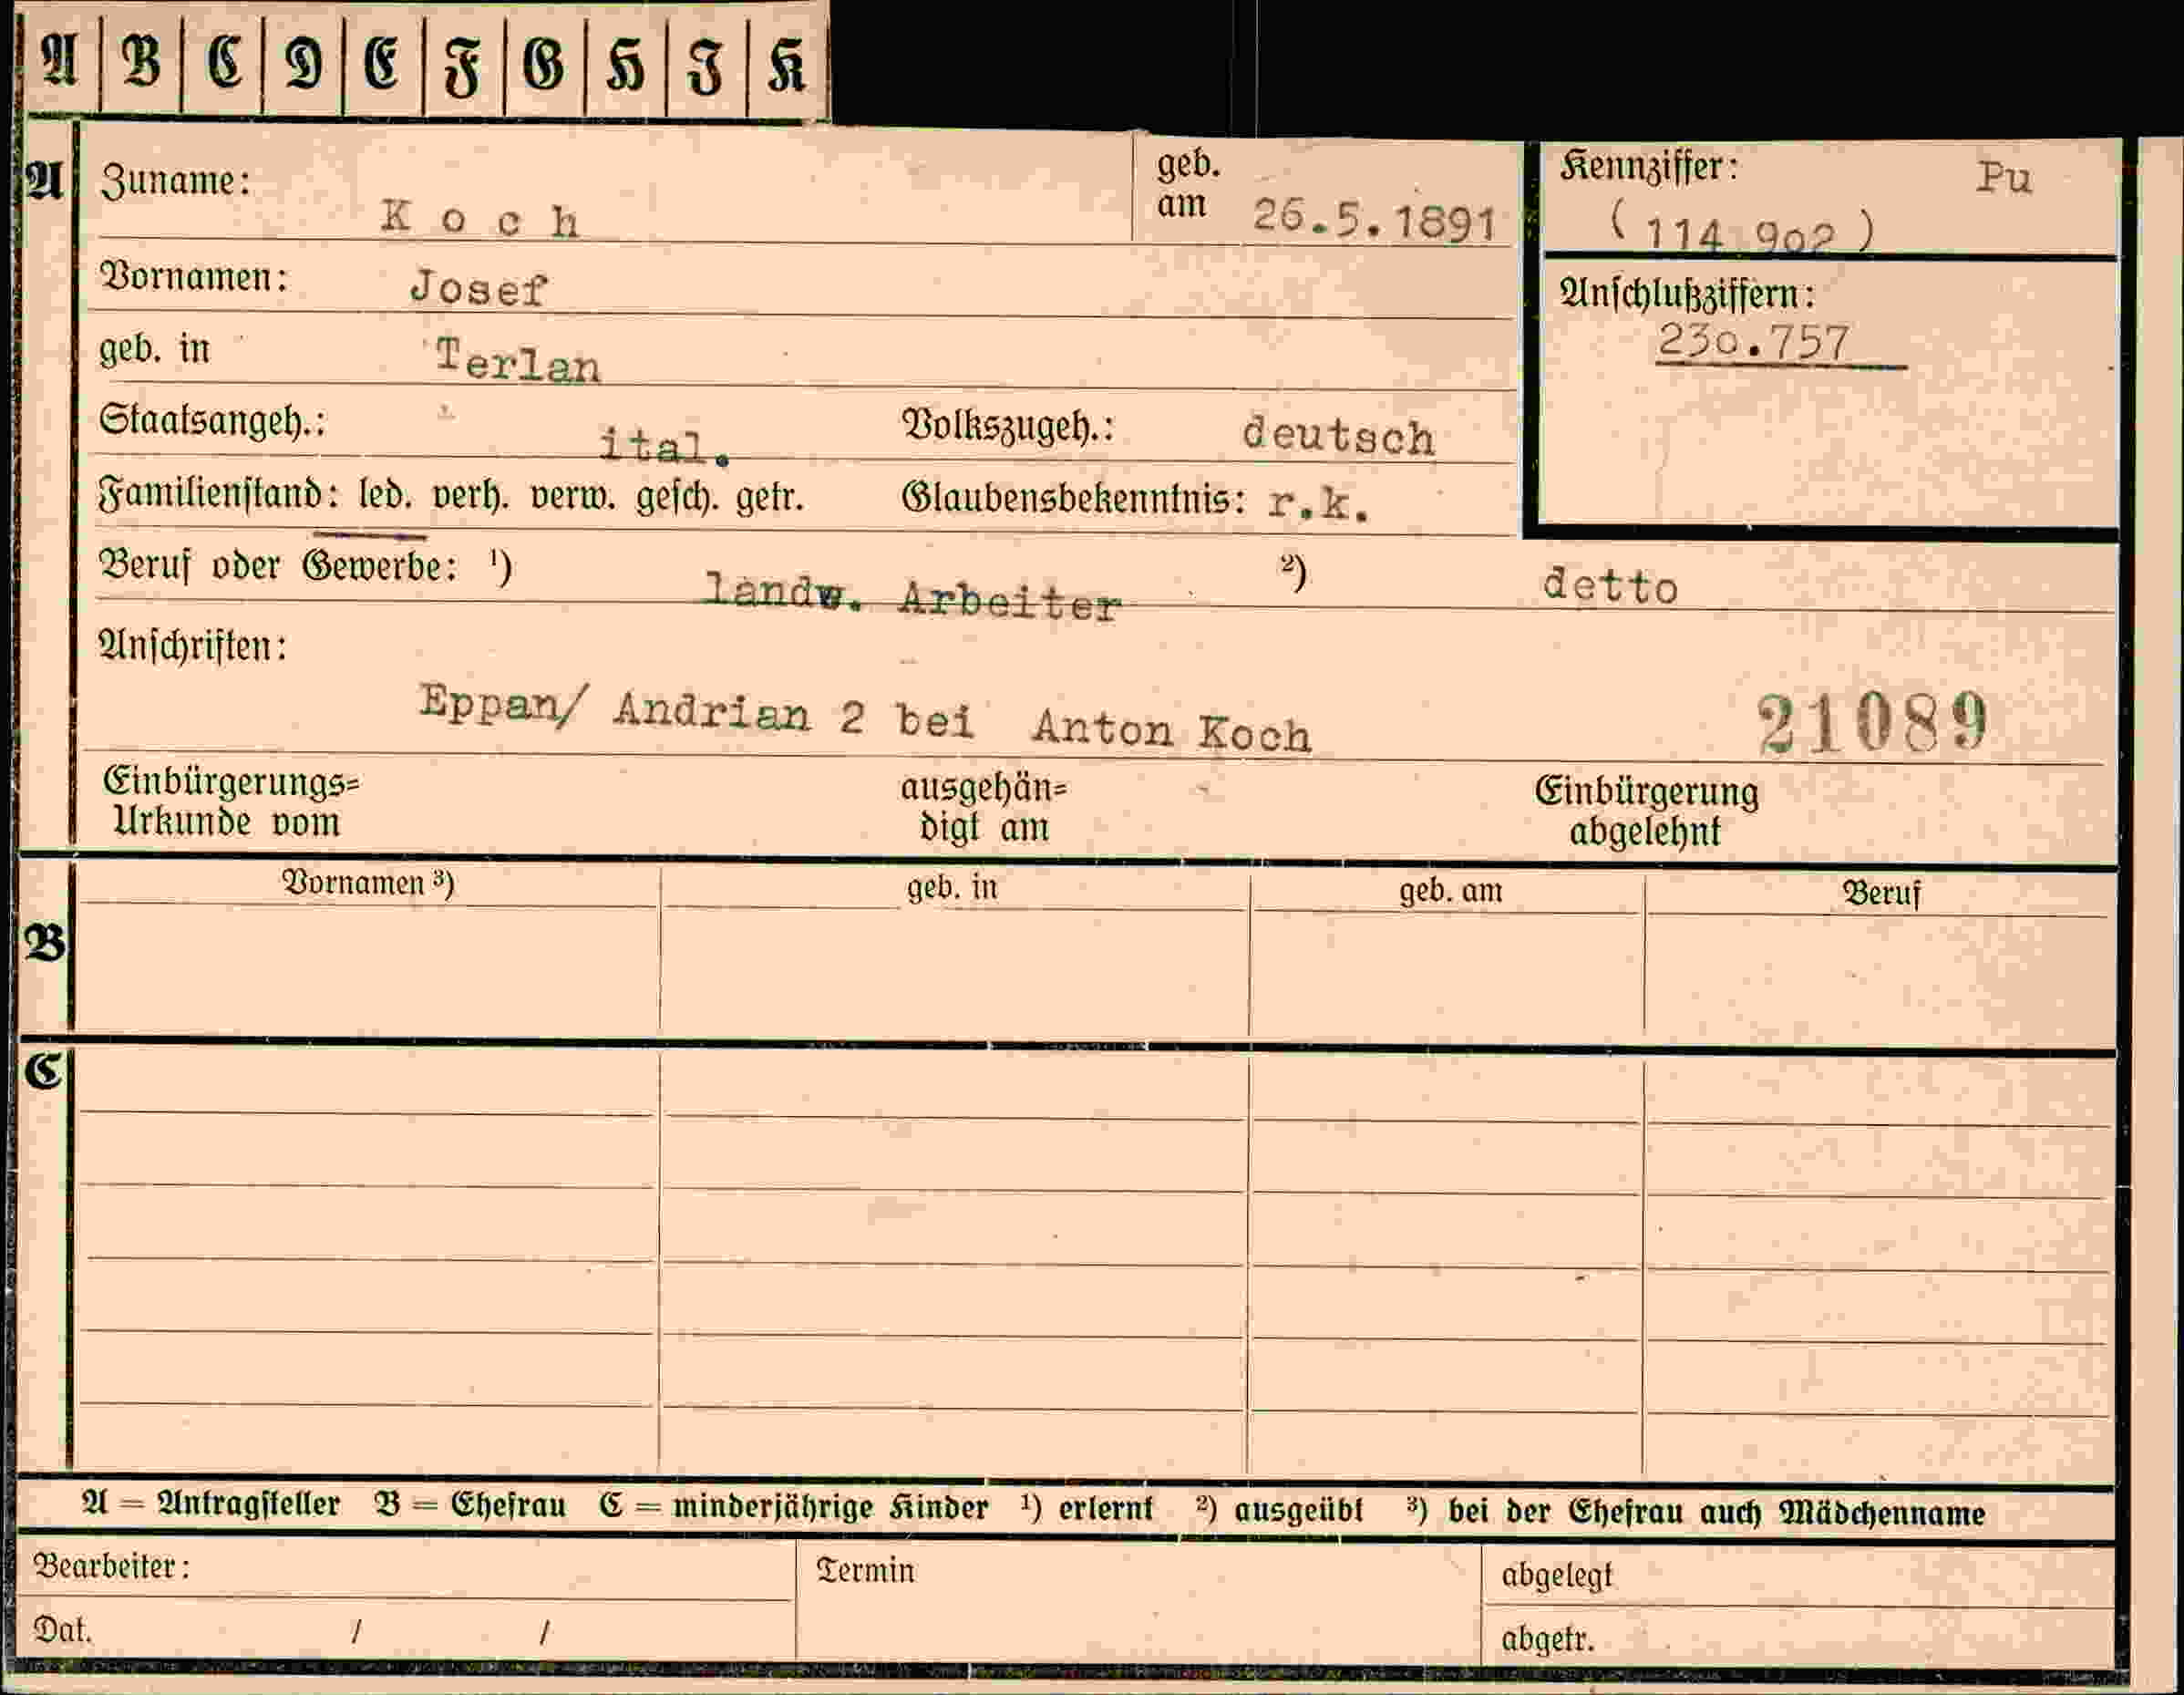 A B C D E F G H I K
A Zuname: K o c h geb. am 26.5.1891
Kennziffer: Pu
( 114 902 )
Vornamen: Josef
Anschlußziffern:
230.757
geb. in Terlan
Staatsangeh.: ital. Volkszugeh.: deutsch
Familienstand: led. verh. verw. gesch. getr. Glaubensbekenntnis: r.k.
Beruf oder Gewerbe: ¹) landw. Arbeiter ²) detto
Anschriften:
Eppan/ Andrian 2 bei Anton Koch 21089
Einbürgerungs= ausgehän= Einbürgerung
Urkunde vom digt am abgelehnt
Vornamen ³) geb. in geb. am Beruf
B
C
A = Antragsteller B = Ehefrau C = minderjährige Kinder ¹) erlernt ²) ausgeübt ³) bei der Ehefrau auch Mädchenname
Bearbeiter: Termin abgelegt
Dat. / / abgetr.